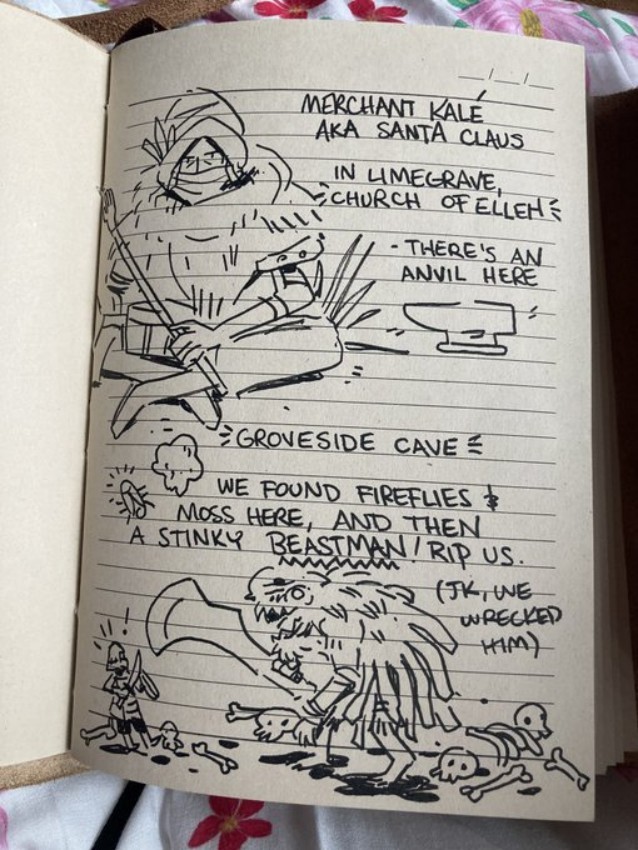 __/__/__
MERCHANT KALÉ
AKA SANTA CLAUS
IN LIMEGRAVE,
CHURCH OF ELLEH
- THERE'S AN
ANVIL HERE
GROVESIDE CAVE
WE FOUND FIREFLIES &
MOSS HERE, AND THEN
A STINKY BEASTMAN! RIP US.
(JK, WE
WRECKED
HIM)
!!